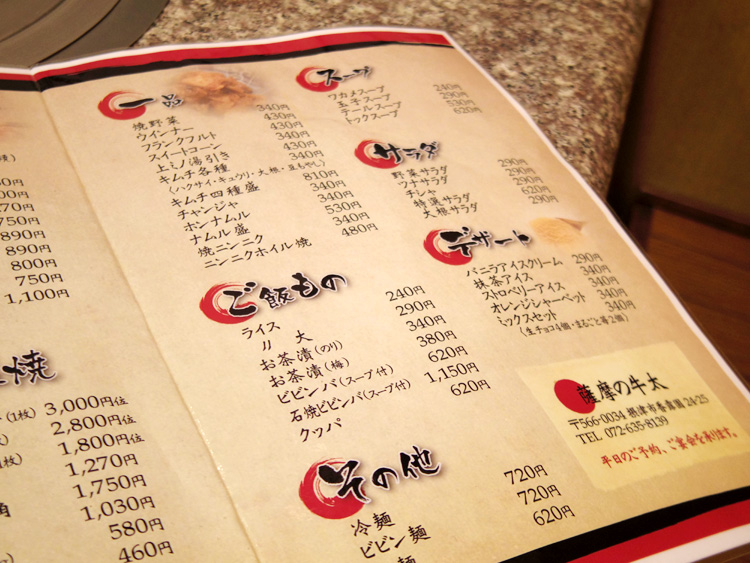 一品
焼野菜 340円
ウインナー 430円
フランクフルト 430円
スイートコーン 340円
上ミノ湯引き 430円
キムチ各種 340円
(ハクサイ・キュウリ・大根・豆もやし)
キムチ四種盛 810円
チャンジャ 340円
ホンナムル 340円
ナムル盛 530円
焼ニンニク 340円
ニンニクホイル焼 480円
スープ
ワカメスープ 240円
玉子スープ 290円
テールスープ 530円
トックスープ 620円
サラダ
野菜サラダ 290円
ツナサラダ 290円
チシャ 290円
特選サラダ 620円
大根サラダ 290円
デザート
バニラアイスクリーム 290円
抹茶アイス 340円
ストロベリーアイス 340円
オレンジシャーベット 340円
ミックスセット 340円
(生チョコ4個・まるごと苺2個)
ご飯もの
ライス 240円
〃 大 290円
お茶漬(のり) 340円
お茶漬(梅) 380円
ビビンバ(スープ付) 620円
石焼ビビンバ(スープ付) 1,150円
クッパ 620円
その他
冷麺 720円
ビビン麺 720円
麺 620円
薩摩の牛太
〒566-0034 摂津市香露園24-25
TEL 072-635-8139
平日のご予約、ご宴会を承ります。
890円
890円
800円
750円
1,100円
焼
(1枚) 3,000円位
2,800円位
1,800円位
1,270円
1,750円
角 1,030円
580円
460円